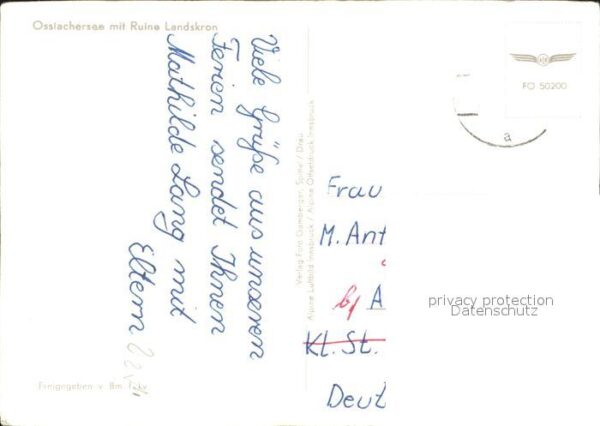 Ossiachersee mit Ruine Landskron
Viele Grüße aus unseren
Ferien sendet Ihnen
Mathilde Lang mit
Eltern
Freigegeben v. Bm. f.
Verlag Ferd. Gamberger, Spittal / Drau
Alpine Luftbild Innsbruck / Alpine Offsetdruck Innsbruck
FO 50200
a
Frau
M. Ant
A
Kl. St.
Deut
privacy protection
Datenschutz